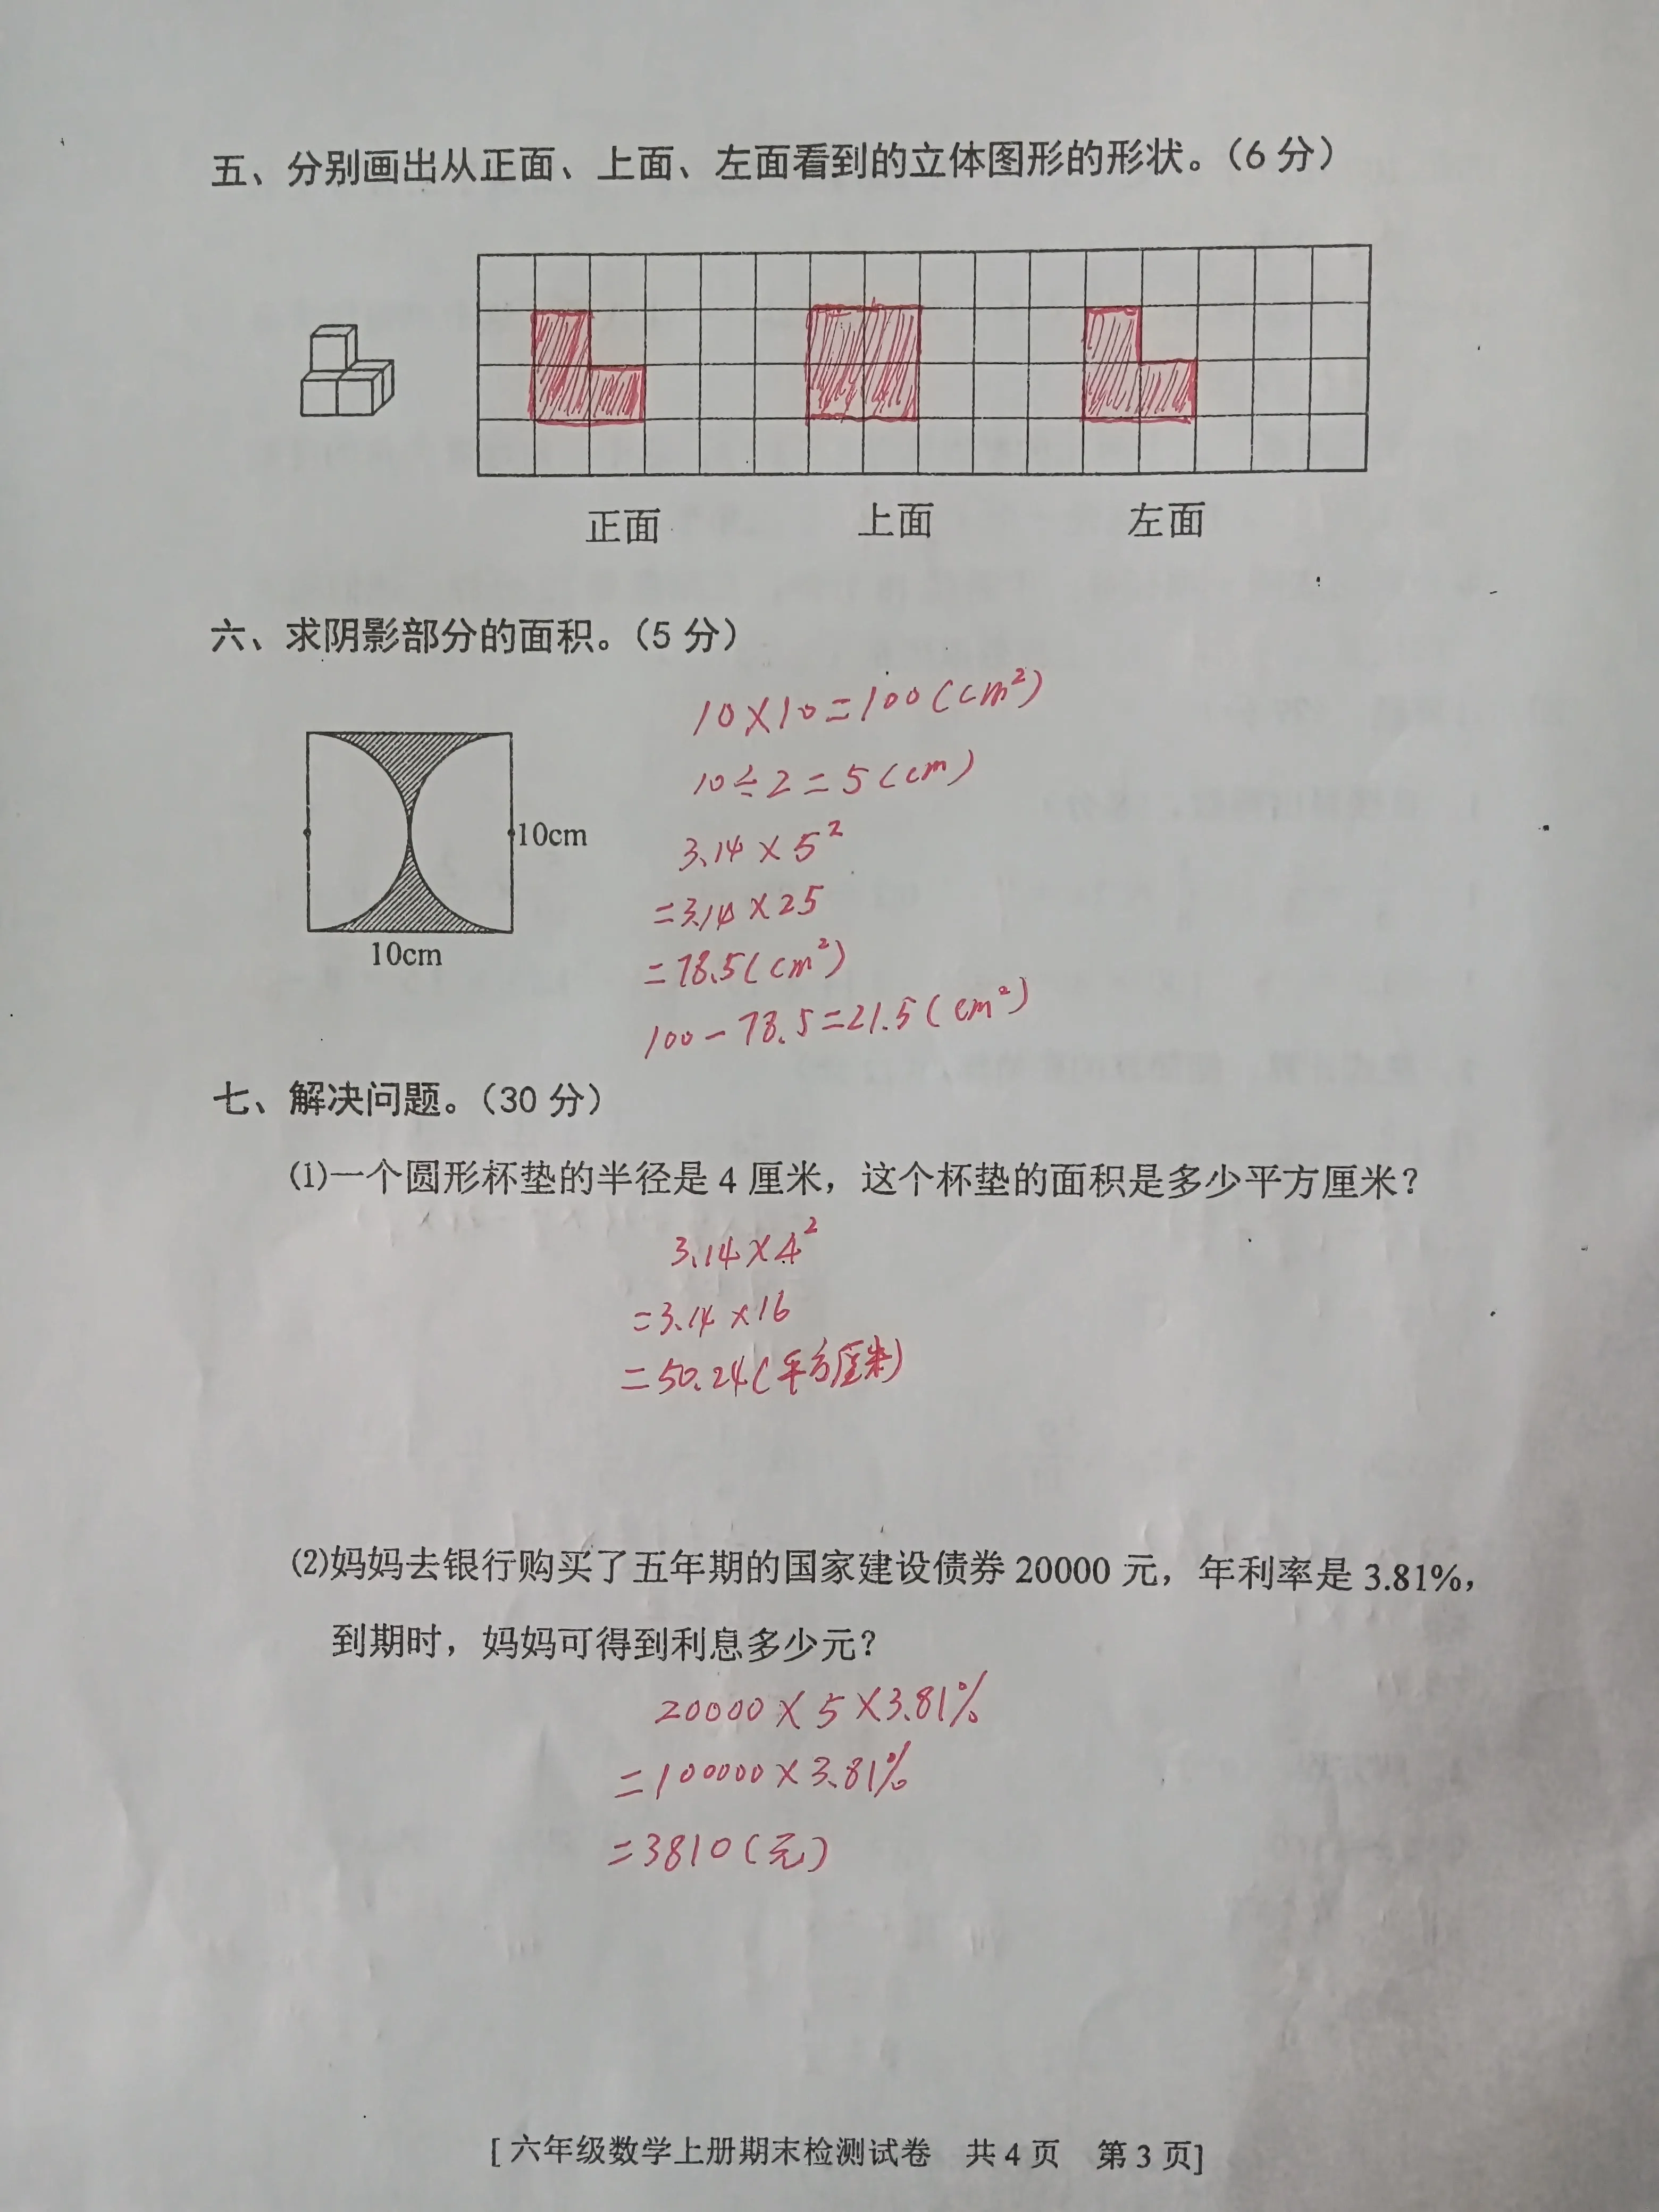 五、分别画出从正面、上面、左面看到的立体图形的形状。（6 分）
正面 上面 左面
六、求阴影部分的面积。（5 分）
10×10=100(cm²)
10÷2=5(cm)
10cm
3.14×5²
=3.14×25
10cm
=78.5(cm²)
100-78.5=21.5(cm²)
七、解决问题。（30 分）
⑴一个圆形杯垫的半径是 4 厘米，这个杯垫的面积是多少平方厘米？
3.14×4²
=3.14×16
=50.24(平方厘米)
⑵妈妈去银行购买了五年期的国家建设债券 20000 元，年利率是 3.81%，
到期时，妈妈可得到利息多少元？
20000×5×3.81%
=100000×3.81%
=3810(元)
[ 六年级数学上册期末检测试卷 共 4 页 第 3 页]